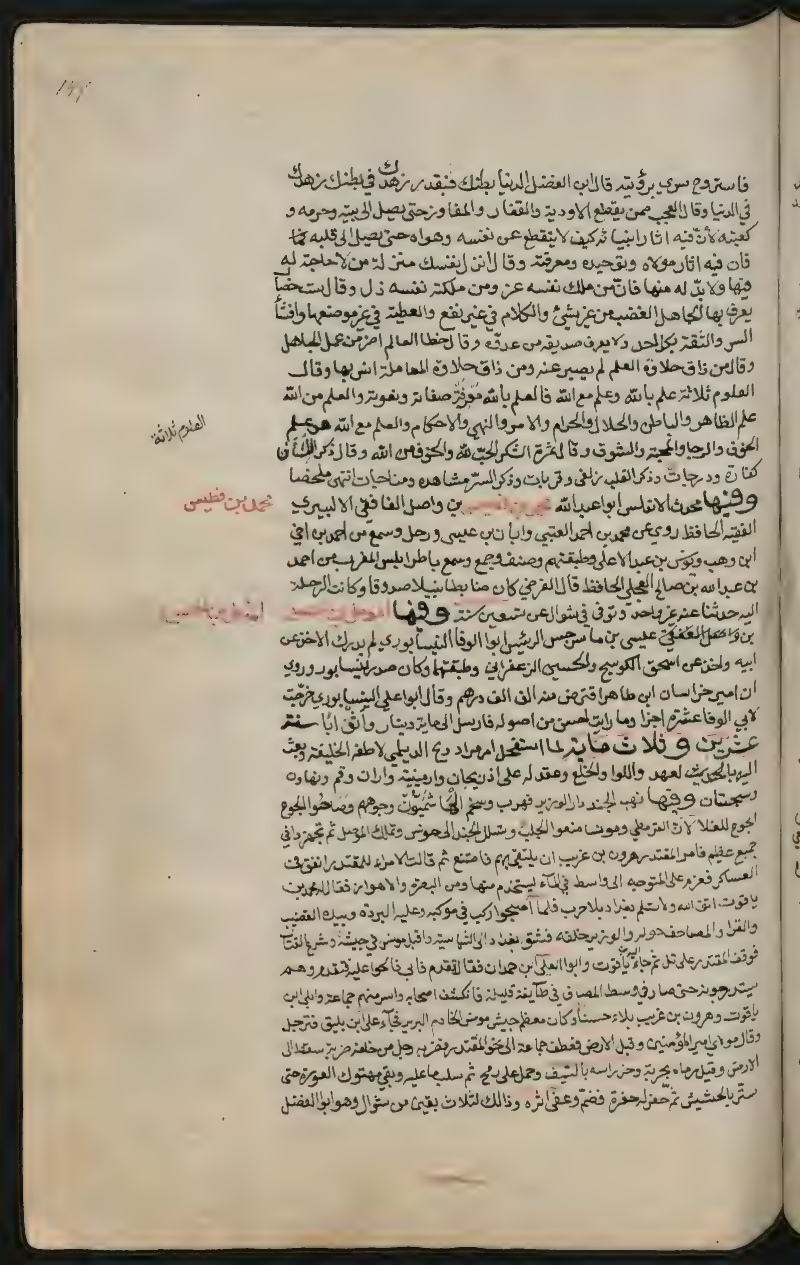 فاستروح سرى برؤيته قال ابن الفضل الدنيا بطنك فبقدر زهدك في بطنك زهدك
في الدنيا وقال العجب ممن يقطع الاودية والقفار والمفاوز حتى يصل الى بيته وحرمه و
كعبته لأن فيه اثار انبيائه كيف لا يقطع عن نفسه وهواه حتى يصل الى قلبه
فان فيه اثار مولاه وتوحيده ومعرفته وقال انزل نفسك منزلة من لا حاجة له
فيها ولا بد له منها فان من ملك نفسه عز ومن ملكته نفسه ذل وقال ست خصال
يعرف بها الجاهل الغضب من غير شئ والكلام في غير نفع والعطية في غير موضعها وافشا
السر والثقة بكل احد ولا يعرف صديقه من عدوه وقال خطا العالم اضر من عمل الجاهل
وقال من ذاق حلاوة العلم لم يصبر عنه ومن ذاق حلاوة المعاملة انس بها وقال
العلوم ثلاثة علم بالله وعلم مع الله فالعلم بالله معرفة صفاته ونعوته والعلم من الله
علم الظاهر والباطن والحلال والحرام والامر والنهي والاحكام والعلم مع الله هو علم
الخوف والرجا والمحبة والشوق وقال ثمرة الشكر الحب لله والخوف من الله وقال ذكر اللسان
كفارة ودرجات وذكر القلب زلفى وقربات وذكر السر مشاهده ومناجات انتهى ملخصا
وفيها محدث الاندلس ابوا عبد الله محمد بن فطيس بن واصل الغافقي الالبيري
الفقيه الحافظ روى عن محمد بن احمد العتبي وابان بن عيسى ورحل وسمع من احمد بن اخي
ابن وهب ويونس بن عبد الاعلى وطبقتهم وصنف وجمع وسمع باطرابلس المغرب من احمد
بن عبد الله بن صالح العجلي الحافظ قال الفرضي كان ضابطا نبيلا صدوقا وكانت الرحلة
اليه حدثنا عنه غير واحد وتوفى في شوال عن تسعين سنة وفيها المومل بن الحسن
بن عيسى بن ماسرجس الرئيس ابوا الوفا النيسابوري لم يدرك الاخذ عن
ابيه واخذ عن اسحق الكوسج والحسن الزعفراني وطبقتهما وكان صدر نيسابور وروى
ان امير خراسان ابن طاهر اقترض منه الف الف درهم وقال ابوا على النيسابوري خرجت
لابي الوفا عشرة اجزا وما رايت احسن من اصوله فارسل الى مايه دينار واثوابا سنة
عشرين وثلاث مايه لما استفحل امر مرداويح الديلمي لاطفه الخليفة وبعث
اليه بالعهد واللوا والخلع وعقد له على اذربيجان وارمينية واران وقم ونهاوند
وسجستان وفيها نهب الجند دار الوزير فهرب وسخم الهاشميون وجوههم وصاحوا الجوع
الجوع للغلا لان القرمطي ومونسا منعوا الجلب وتسلل الجند الى مونس وتملك الموصل ثم تجهز في
جميع عظيم فامر المقتدر هرون بن غريب ان يلتقيهم فامتنع ثم قالت الامراء للمقتدر انفق في
العساكر فعزم على التوجه الى واسط في الماء ليستخدم منها ومن البصرة والاهواز فقال له محمد بن
ياقوت اتق الله ولا تسلم بغداد بلا حرب فلما اصبحوا ركب في موكبه وعليه البردة وبيده القضيب
والقرا والمصاحف حوله والوزير خلفه فشق بغداد الى الشماسية واقبل مونس في جيشه وشرع القتال
فوقف المقتدر على تل ثم جاء ياقوت وابوا العلى ابن حمدان فقالا تقدم فابى فالحوا عليه فتقدم وهم
يستدرجونه حتى صار في وسط المصاف في طايفة قليلة فانكشف اصحابه واسر منهم جماعة وابلى ابن
ياقوت وهرون بن غريب بلاء حسنا وكان معظم جيش مونس الخادم البربر فجآء على ابن بليق فترجل
وقال مولاي امير المؤمنين وقبل الارض فعطف جماعة الى نحو المقتدر فضربه رجل من خلفه ضربة سقط الى
الارض وقيل رماه بحربة وحز راسه بالسيف وحمل على رمح ثم سلب ما عليه وبقي مهتوك العورة حتى
ستر بالحشيش ثم حفر له حفرة فضم وعفى اثره وذالك لثلاث بقين من شوال وهو ابوا الفضل
العلوم ثلاثة
محمد بن فطيس